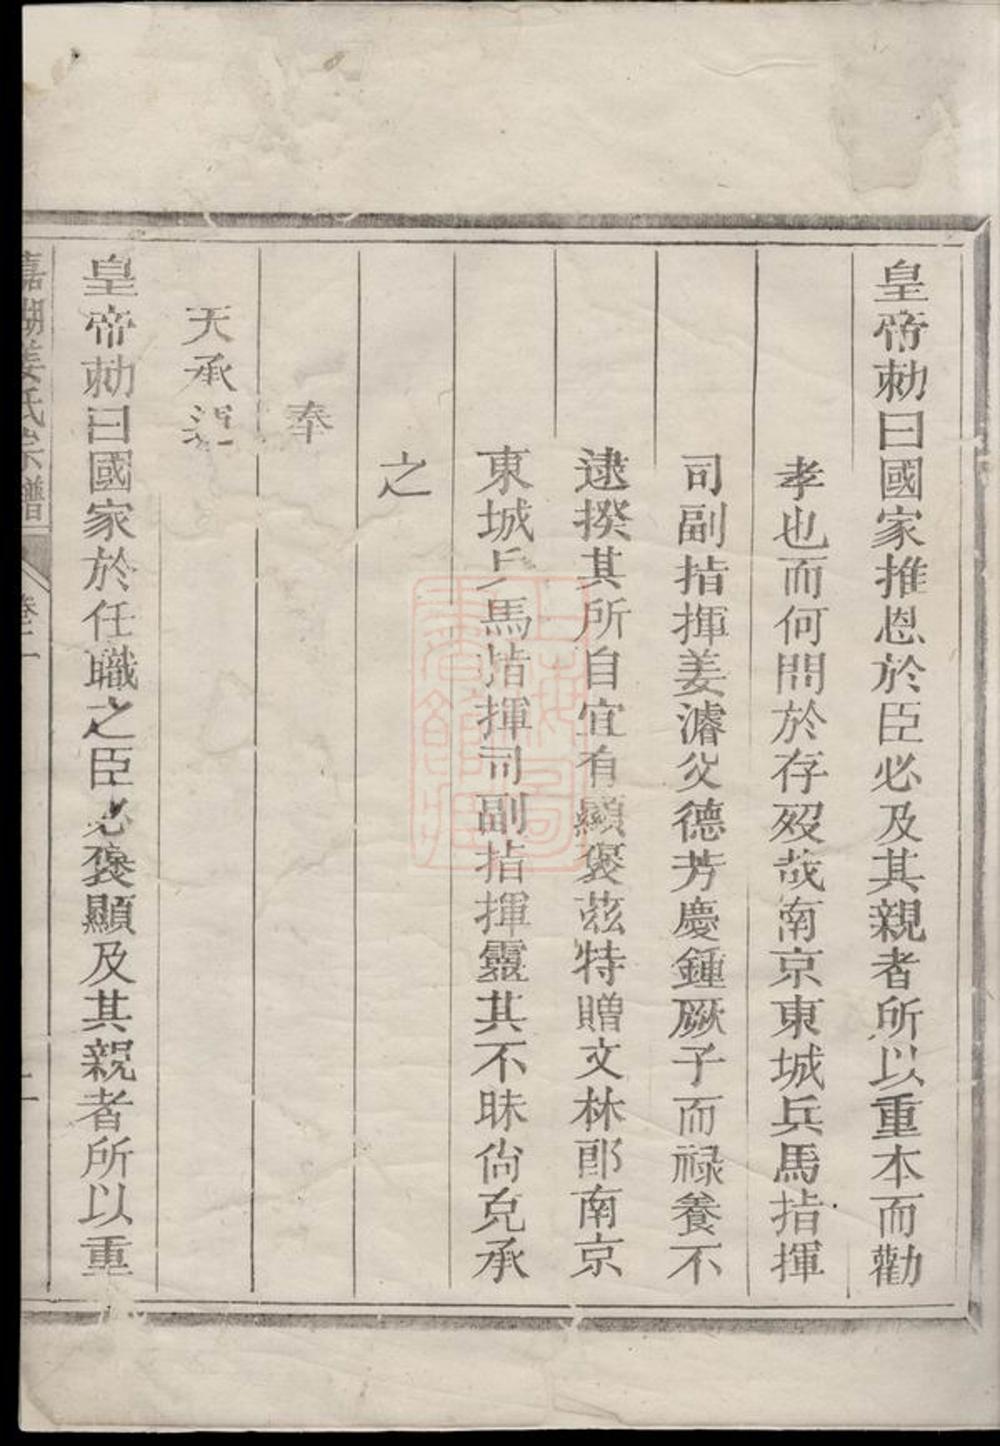 皇帝勅曰國家推恩於臣必及其親者所以重本而勸
孝也而何問於存歿哉南京東城兵馬指揮
司副指揮姜濬父德芳慶鍾厥子而祿養不
逮揆其所自宜有顯褒茲特贈文林郎南京
東城兵馬指揮司副指揮靈其不昧尙克承
之
奉
天承運
皇帝勅曰國家於任職之臣必褒顯及其親者所以重
嘉湖姜氏宗譜 卷一 二
上海圖書館藏